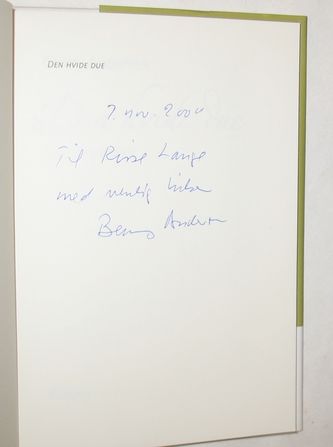 DEN HVIDE DUE
7. nov. 2000
Til Risse Lange
med venlig hilsen
Benny Andersen